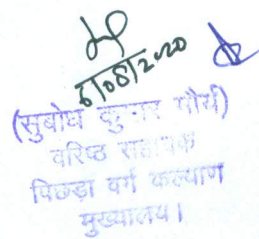 6/08/2020
(सुबोध कुमार मौर्य)
वरिष्ठ सहायक
पिछड़ा वर्ग कल्याण
मुख्यालय।